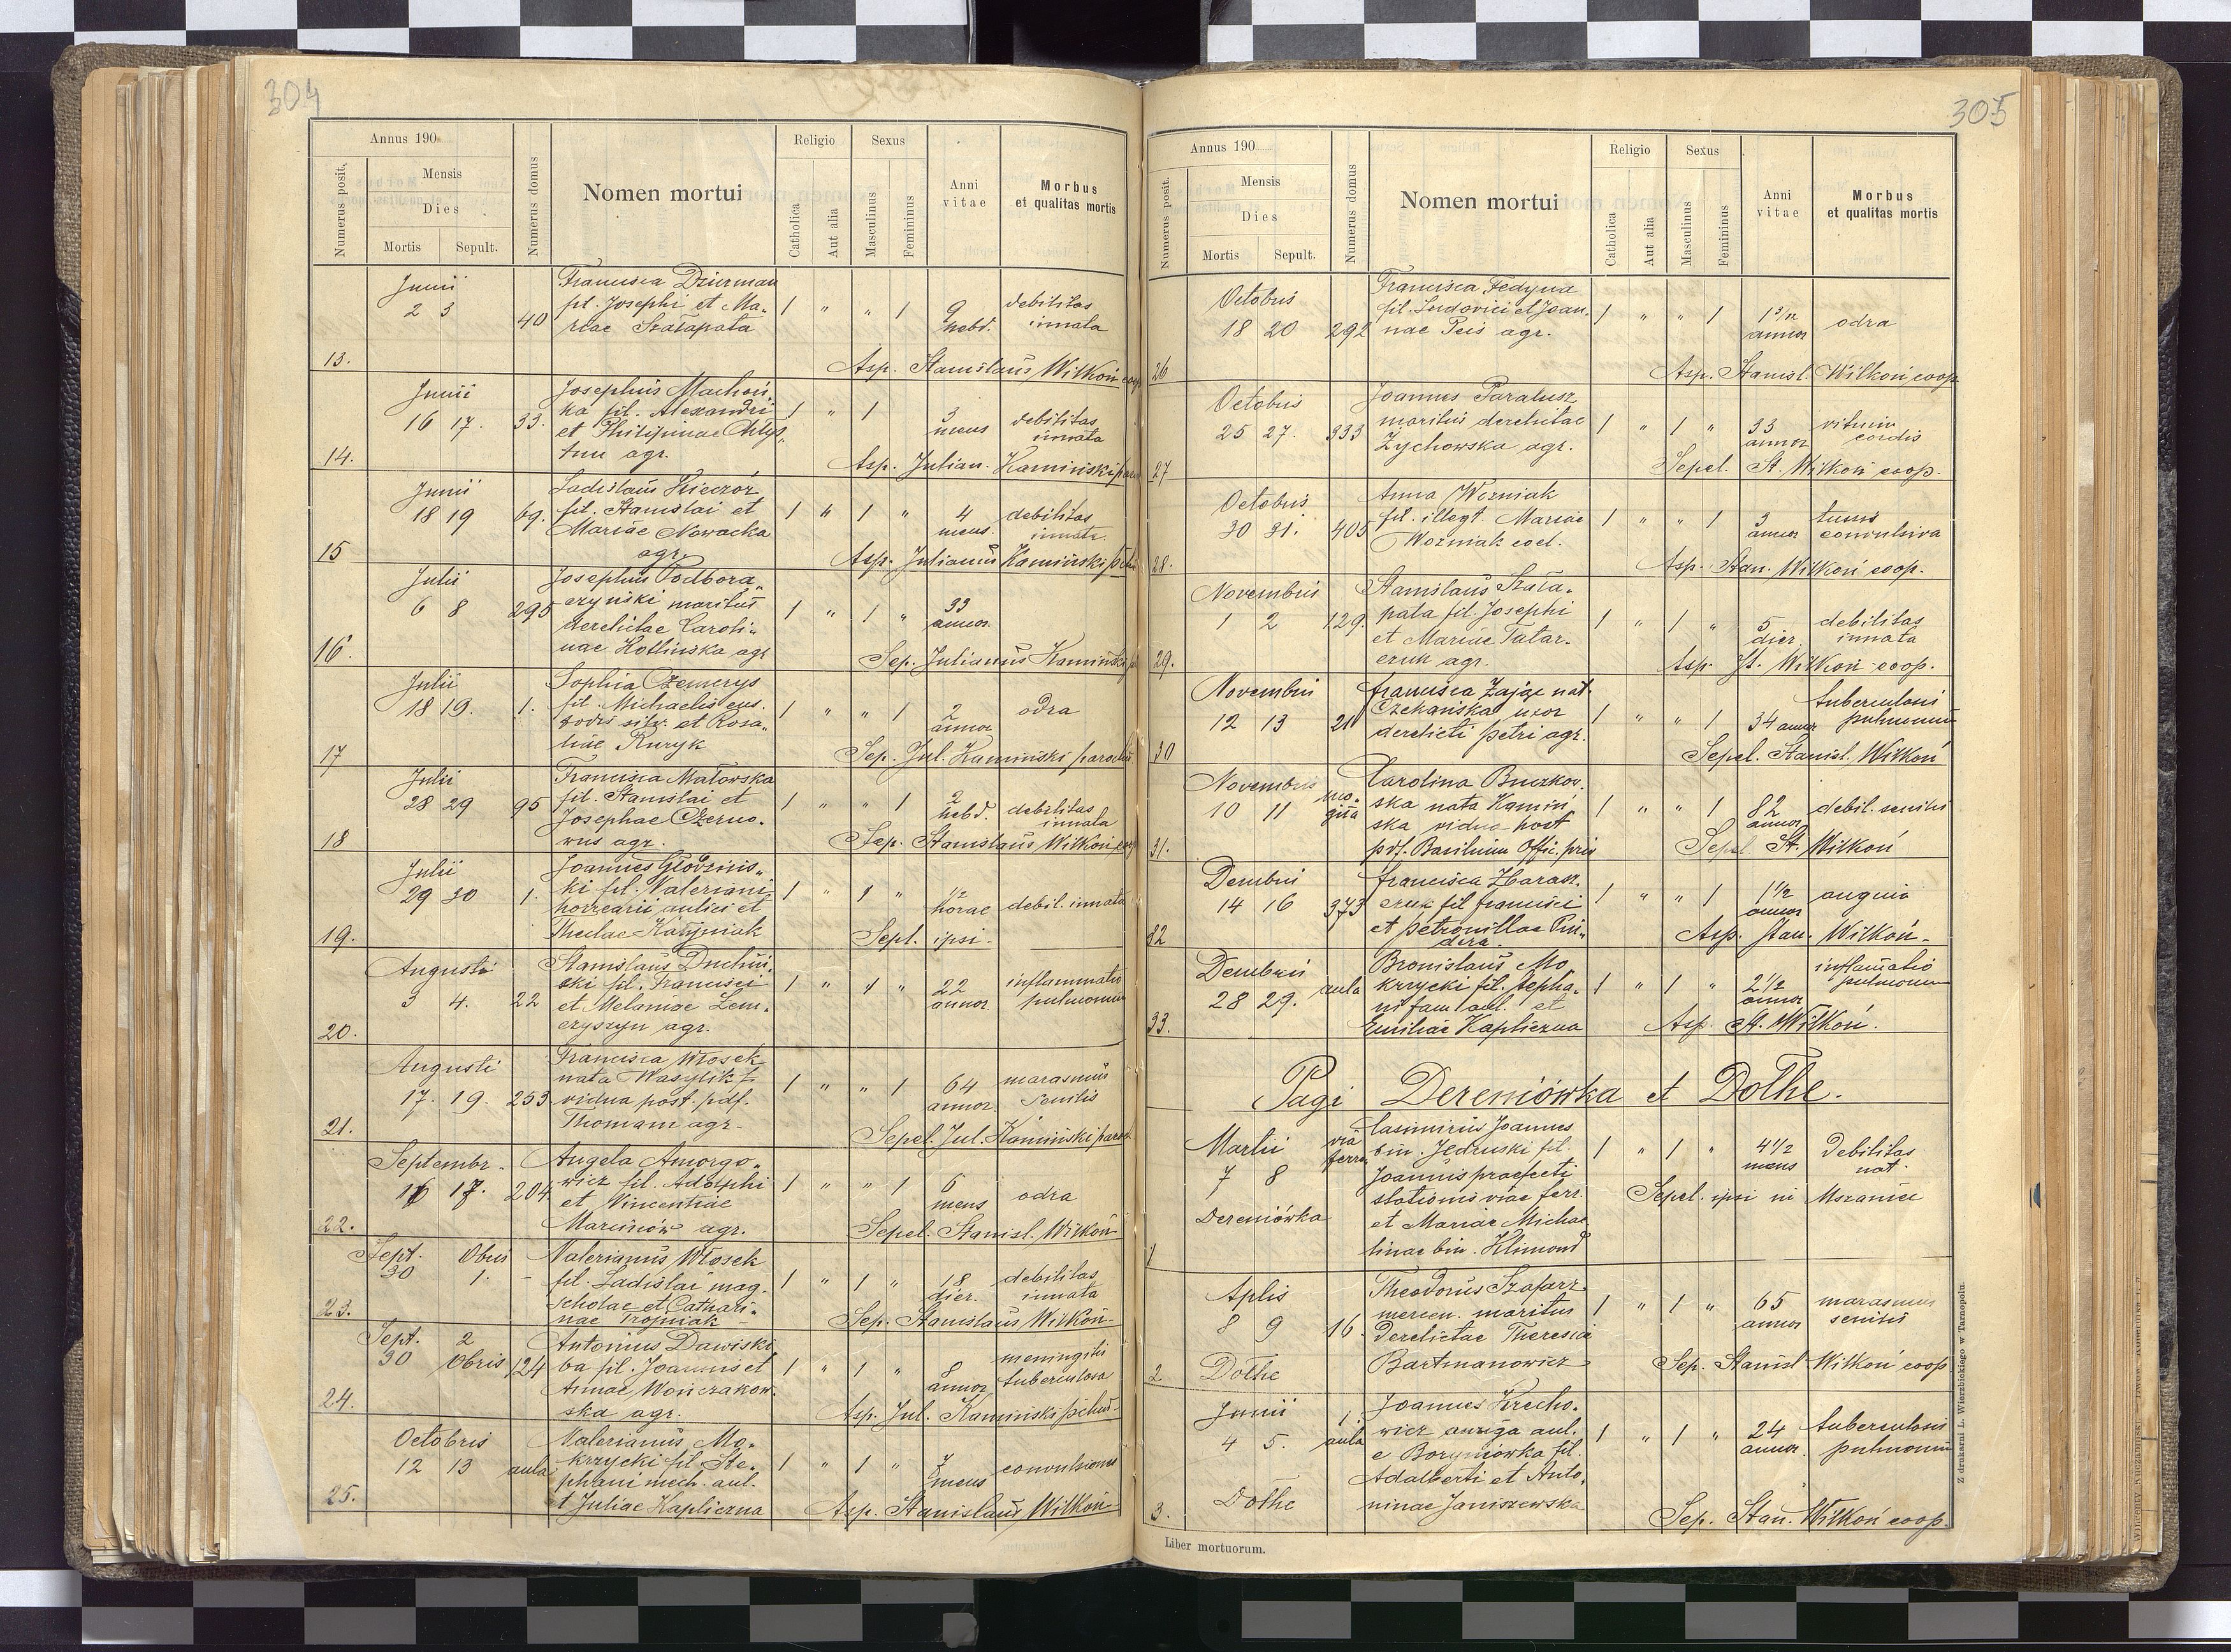 304
Annus 190
Numerus posit.
Mensis
Dies
Mortis Sepult.
Numerus domus
Nomen mortui
Religio
Catholica
Aut alia
Sexus
Masculinus
Femininus
Anni vitae
Morbus
et qualitas mortis
Junii
2 3
40
Francisca Dziurman
Josephi et Ma-
riae Szałapata
1 " " 1
9 hebd.
debilitas
innata
13.
Asp. Stanislaus Wilkoń coop
Junii
16 17.
33.
Josephus Machoń
ka fil. Alexandri
et Philipinae
agr.
1 " 1
3 mens
debilitas
innata
14.
Asp. Julian. Kamiński
Junii
18 19
69.
Ladislaus
fil. Stanislai et
Mariae Nowacka
agr.
1 " 1 "
4 mens.
debilitas
innata
15
Asp. Julianus Kamiński
Julii
6 8
295
Josephus Podhora-
czyński maritus
derelictae Caroli-
nae agr
1 " 1 "
33 annor.
16.
Sep. Julianus Kamiński
Julii
18 19.
1.
Sophia Czemerys
fil. Michaelis cus.
silv. et Rosa-
liae Kuryk
1 " " 1
2 annor
odra
17
Sep. Jul. Kamiński parochus
Julii
28 29
95
Francisca Małowska
fil. Stanislai et
Josephae Czerno-
wus agr.
1 " " 1
2 hebd.
debilitas
innata
18
Sep. Stanislaus Wilkoń coop
Julii
29 30
1.
Joannes Głodzińs-
ki fil. Valeriani
horrearii aulici et
Theclae
1 " 1 "
1/2 horae
debil. innata
19.
Sepl. ipsi.
Augusti
3 4.
22
Stanislaus Duchiń-
ski fil. Francisci
et Melaniae Lem-
czyszyn agr.
1 " 1 "
22 annor.
inflammatio
pulmonum
20.
Augusti
17. 19.
253
Francisca Włosek
nata Wasylik
vidua post. pdf.
Thomam agr.
1 " " 1
64 annor.
marasmus
senilis
21.
Sepel. Jul. Kamiński paroch
Septembr.
16 17.
204
Angela Amorgo-
wicz fil. Adolphi
et Vincentiae
Marciniów agr.
1 " " 1
6 mens
odra
22.
Sepel. Stanisl. Wilkoń
Sept. Obris
30 1.
Valerianus Włosek
fil. Ladislai mag.
scholae et Cathari-
nae Trojniak
1 " 1 "
18 dier.
debilitas
innata
23.
Sep. Stanislaus Wilkoń
Sept. 2
30 Obris
124
Antonius Dawiski
ba fil. Joannis et
Annae Wończakow
ska agr.
1 " 1 "
8 annor
meningitis
tuberculosa
24.
Asp. Jul. Kamiński
Octobris
12 13
aula
Valerianus Mo-
krzycki fil. Ste-
phani mech. aul.
et Juliae Kapliczna
1 " 1 "
7 mens
convulsiones
25.
Asp. Stanislaus Wilkoń
305
Annus 190
Numerus posit.
Mensis
Dies
Mortis Sepult.
Numerus domus
Nomen mortui
Religio
Catholica
Aut alia
Sexus
Masculinus
Femininus
Anni vitae
Morbus
et qualitas mortis
Octobris
18 20
292
Francisca Fedyna
fil. Ludovici et Joan-
nae agr.
1 " " 1
annor
odra
26
Asp. Stanisl. Wilkoń coop
Octobris
25 27.
333
Joannes Paralusz
maritus derelictae
Żychowska agr.
1 " 1 "
33 annor
vitium
cordis
27
Sepel. St. Wilkoń coop.
Octobris
30 31.
405
Anna Woźniak
fil. illegt. Mariae
Woźniak coel.
1 " " 1
3 annor
tussis
convulsiva
28.
Asp. Stan. Wilkoń coop.
Novembris
1 2
129.
Stanislaus Szała-
pata fil. Josephi
et Mariae Tatar-
czuk agr.
1 " 1 "
5 dier
debilitas
innata
29.
Asp. St. Wilkoń coop.
Novembris
12 13
21
Francisca Zając nat.
Czekańska uxor
derelicti Petri agr.
1 " " 1
34 annor
tuberculosis
pulmonum
30
Sepel. Stanisl. Wilkoń
Novembris
10 11
Carolina Buczkow-
ska nata Kamiń-
ska vidua post
pdf. Basilium Offic. priv
1 " " 1
82 annor
debil. senilis
31.
Sepel. St. Wilkoń
Dembris
14 16
373
Francisca Zbarasz-
czuk fil Francisci
et Petronillae Pin-
dera
1 " " 1
1 1/2 annor
angina
32
Asp. Stan. Wilkoń
Dembris
28 29.
aula
Bronislaus Mo
krzycki fil. Stepha-
ni fam. aul. et
Emiliae Kapliczna
1 " 1 "
2 1/2 annor
inflamatio
pulmonum
33.
Asp. St. Wilkoń.
Pagi Dereniówka et Dołhe.
Martii
7 8
Dereniówka
via
ferrea
Casimirus Joannes
bin. Jedruski fil.
Joannis praefecti
stationis viae ferr.
et Mariae Michae
linae bin. Klimond
1 " 1 "
4 1/2 mens
Debilitas
nat.
1
Sepel. ipsi in Mszaniec
Aplis
8 9
Dołhe
16.
Theodorus Szafarz
mercen. maritus
derelictae Theresiae
Bartmanowicz
1 " 1 "
65 annor
marasmus
senilis
2
Sep. Stanisl Wilkoń coop
Junii
4 5.
Dołhe
1.
aula
Joannes Krecho-
wicz auriga aul.
e Boryniówka fil.
Adalberti et Anto-
ninae Janiszewska
1 " 1 "
24 annor.
tuberculosis
pulmonum
3.
Sep. Stan. Wilkoń coop.
Liber mortuorum.
Z drukarni L. Wierzbickiego w Tarnopolu